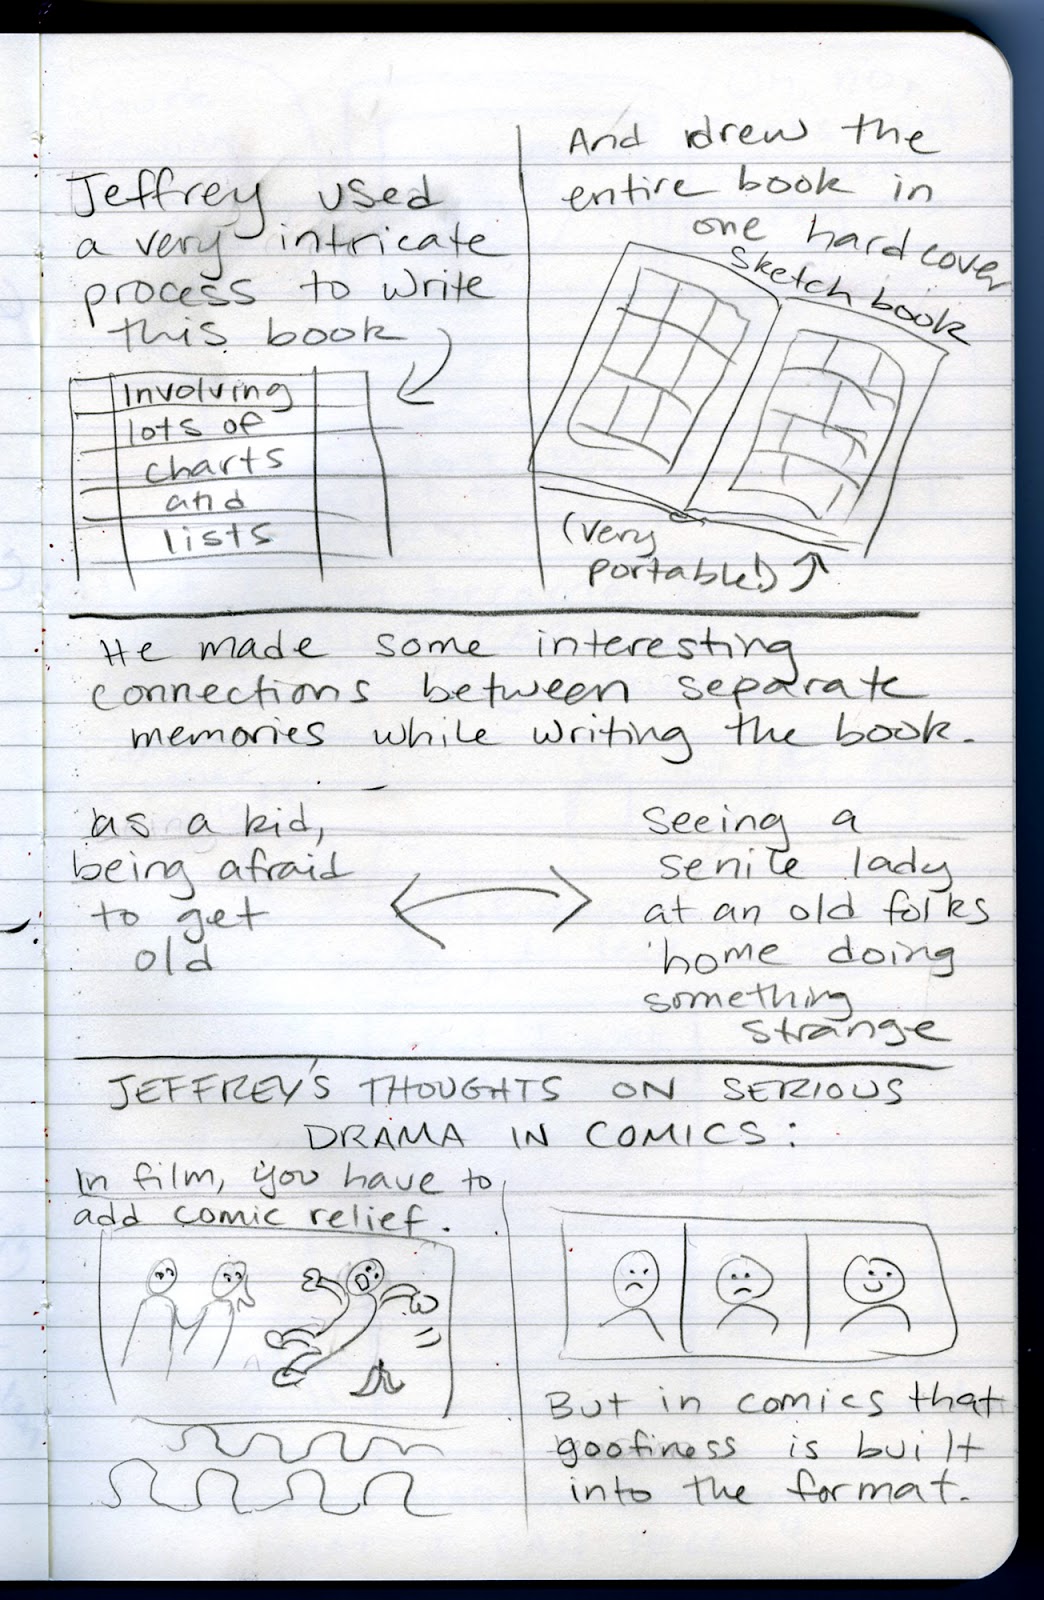 Jeffrey used
a very intricate
process to write
this book
Involving
lots of
charts
and
lists
And drew the
entire book in
one hardcover
sketch book
(very
portable!)
He made some interesting
connections between separate
memories while writing the book.
as a kid,
being afraid
to get
old
seeing a
senile lady
at an old folks
home doing
something
strange
JEFFREY'S THOUGHTS ON SERIOUS
DRAMA IN COMICS:
In film, you have to
add comic relief.
But in comics that
goofiness is built
into the format.